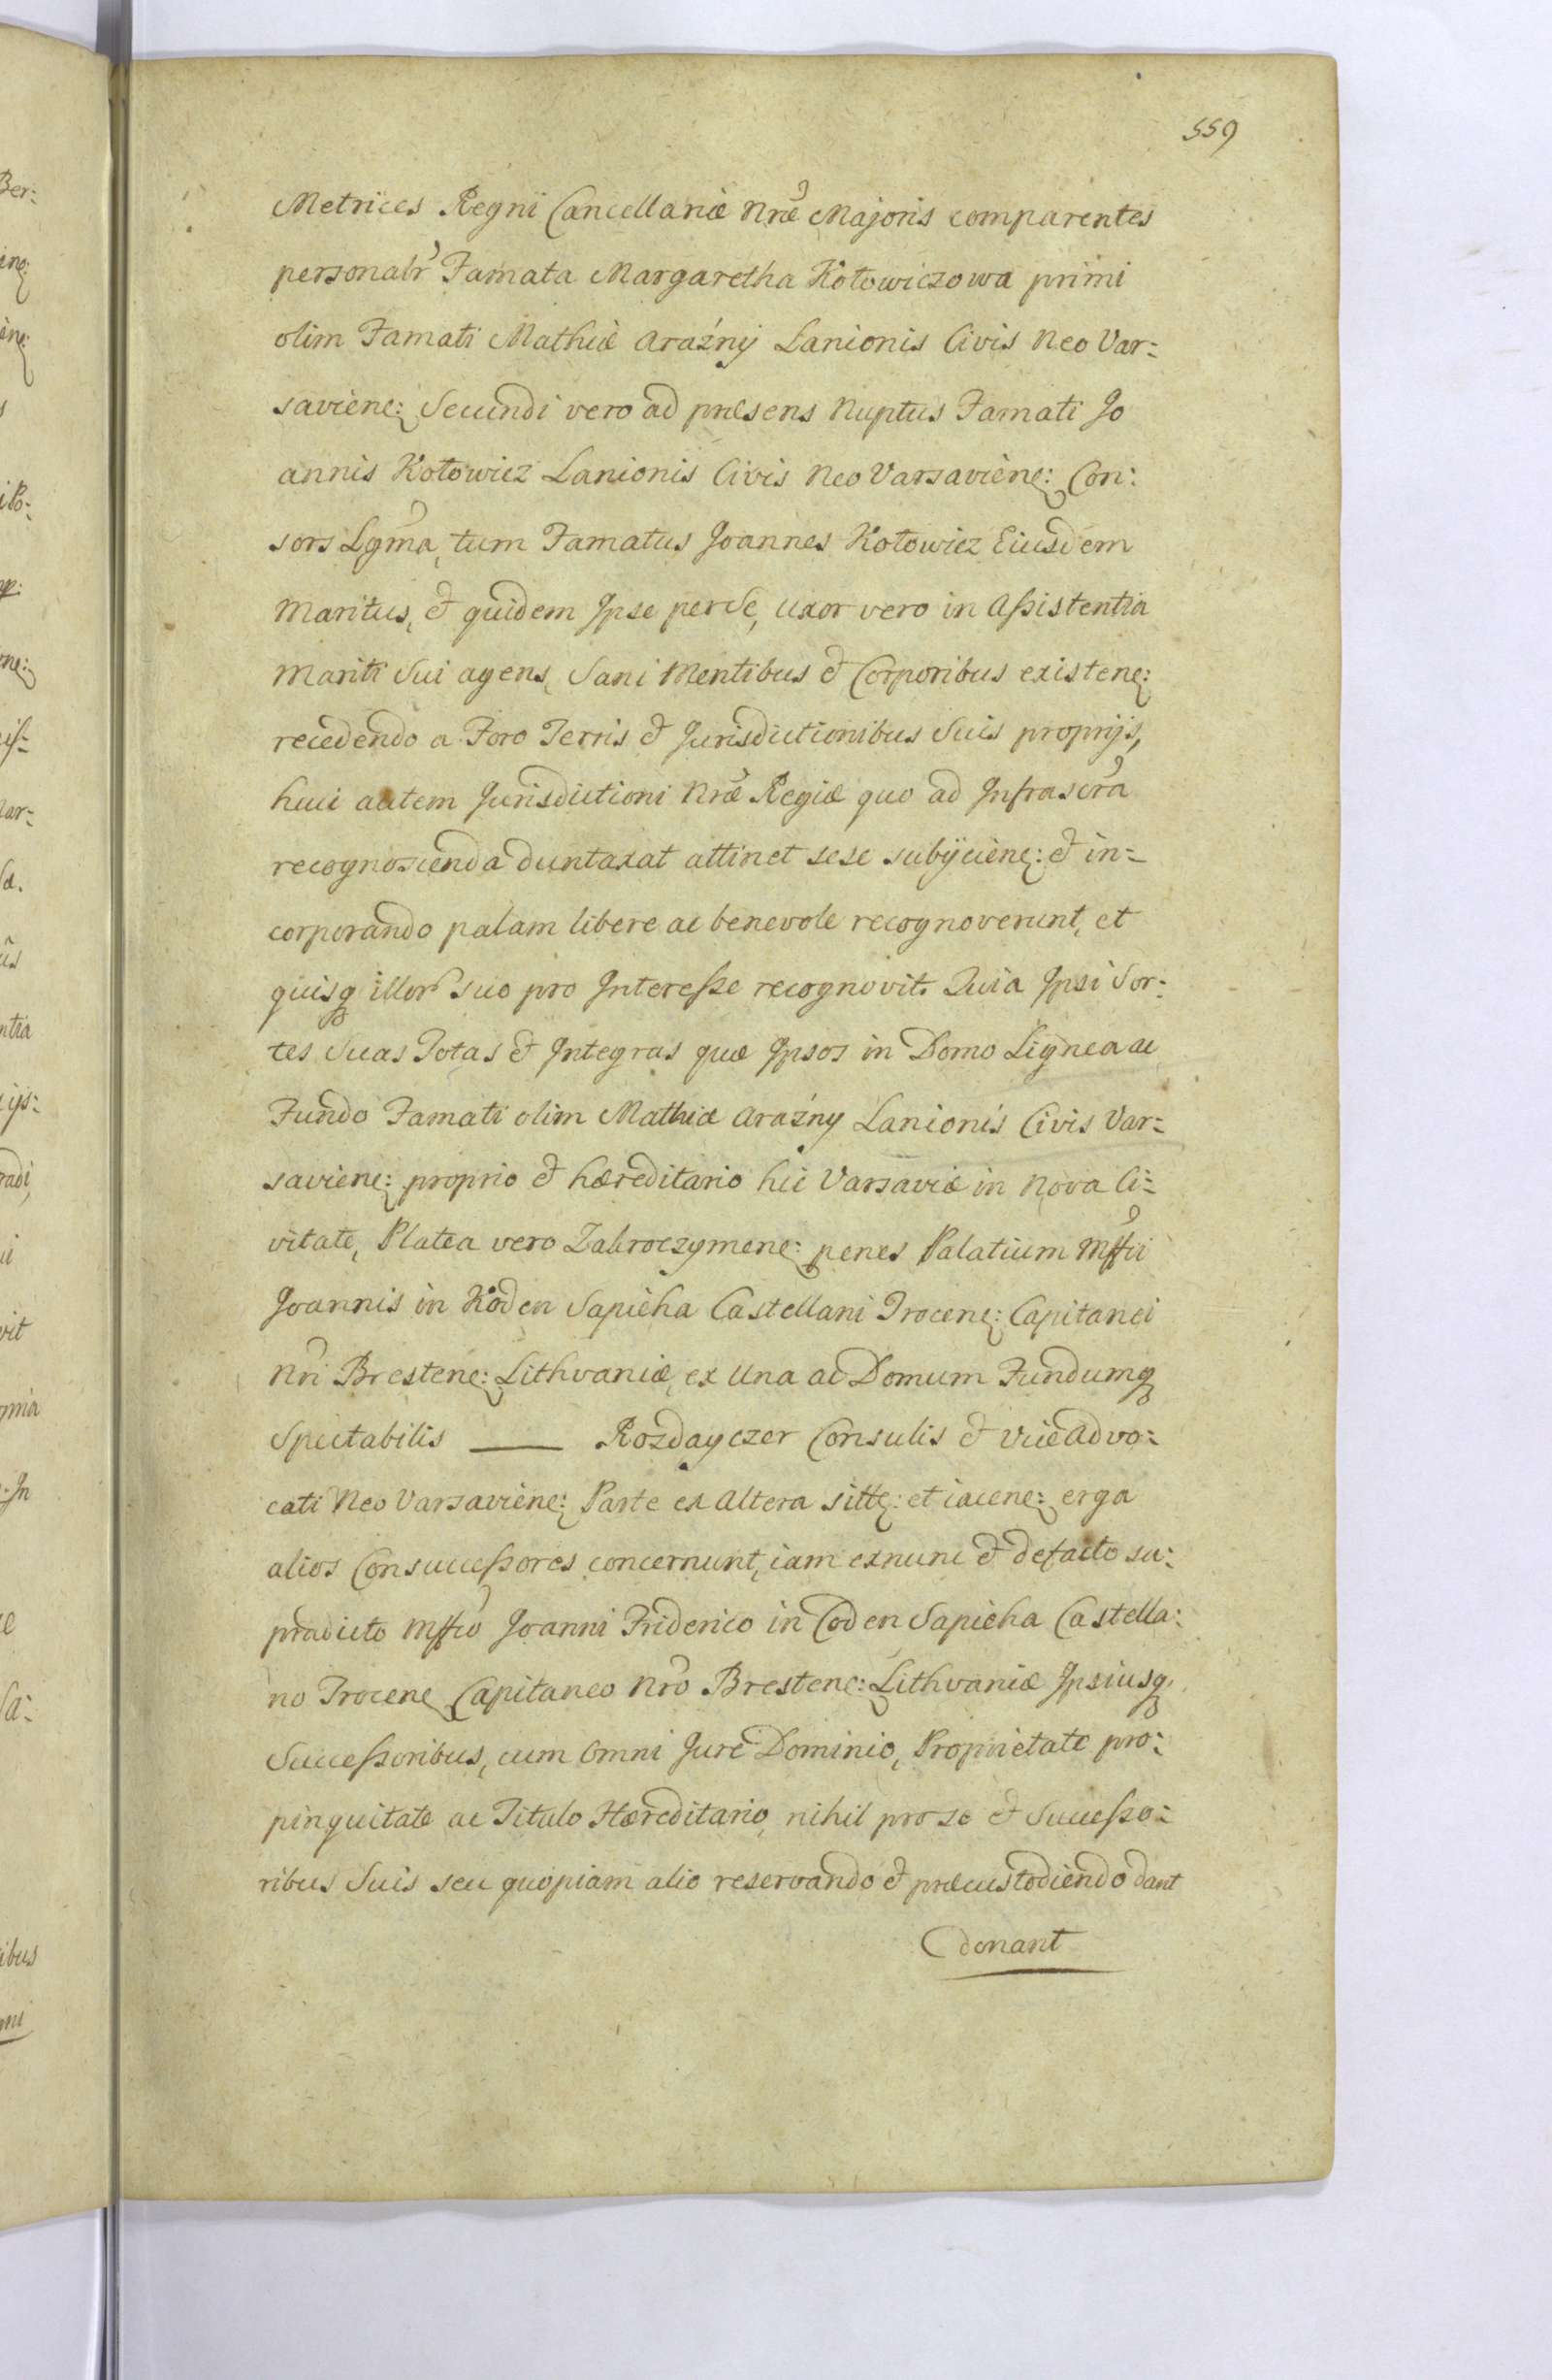 559
Metrices Regni Cancellariæ Nræ Majoris comparentes
personalr Famata Margaretha Kotowiczowa primi
olim Famati Mathiæ Araźny Lanionis Civis Neo Var:
saviene: Secundi vero ad præsens Nuptus Famati Jo
annis Kotowicz Lanionis Civis Neo Varsaviene: Con:
sors Lgma, tum Famatus Joannes Kotowicz Eiusdem
Maritus, et quidem Ipse per Se, uxor vero in Assistentia
Mariti Sui agens, Sani Mentibus et Corporibus existene:
recedendo a Foro Terris et Jurisdictionibus Suis proprijs,
huic autem Jurisdictioni Nræ Regiæ quo ad Infrascra
recognoscenda duntaxat attinet sese subijciene: et in:
corporando palam libere ac benevole recognoverunt, et
quisq illor suo pro Interesse recognovit. Quia Ipsi Sor:
tes Suas Totas et Integras quæ Ipsos in Domo Lignea ac
Fundo Famati olim Mathiæ Araźny Lanionis Civis Var:
saviene: proprio et hæreditario hic Varsaviæ in Nova Ci:
vitate, Platea vero Zakroczymene: penes Palatium Mffci
Joannis in Koden Sapieha Castellani Trocene: Capitanei
Nri Brestene: Lithvaniæ, ex una ac Domum Fundumq
Spectabilis ___ Rozdayczer Consulis et Vice Advo:
cati Neo Varsaviene: Parte ex Altera sitte: et iacene: erga
alios Consuccessores concernunt, iam exnunc et defacto su:
pradicto Mffco Joanni Friderico in Coden Sapieha Castella:
no Trocene Capitaneo Nro Brestene: Lithvaniæ Ipsiusq
Successoribus, cum Omni Jure Dominio, Proprietate pro:
pinquitate ac Titulo Hæreditario, nihil pro se et Successo:
ribus Suis seu quopiam alio reservando et præcustodiendo dant
donant